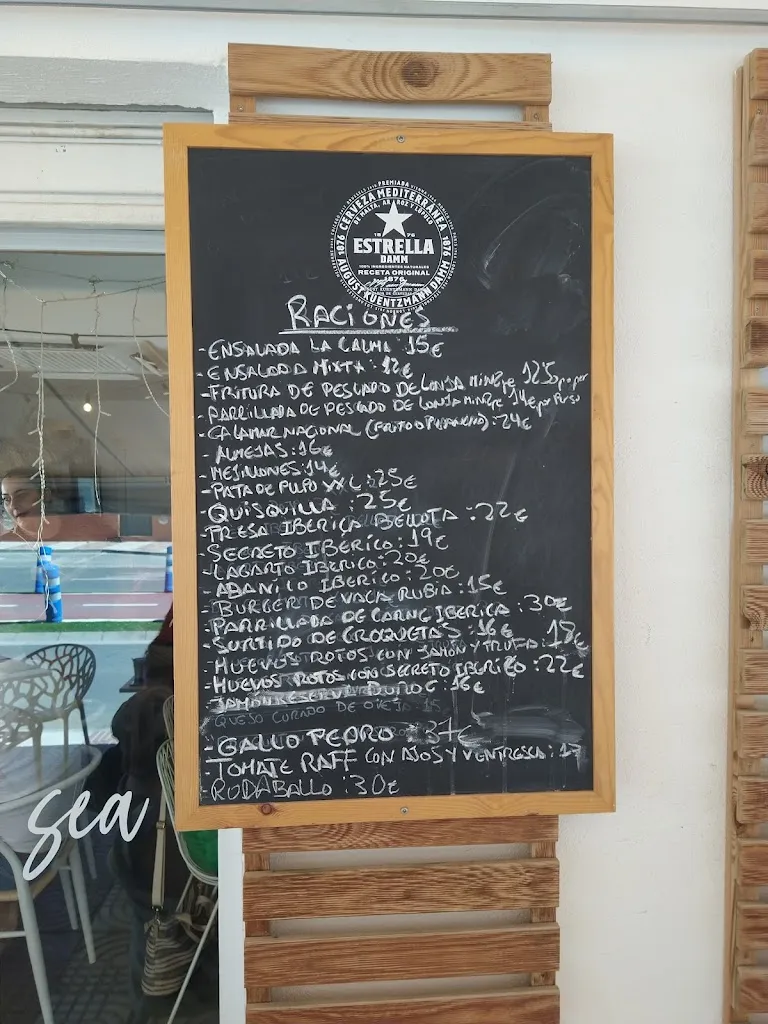 PREMIADA
CERVEZA MEDITERRÁNEA
DE MALTA, ARROZ Y LÚPULO
1876 1876
ESTRELLA
DAMM
100% INGREDIENTES NATURALES
RECETA ORIGINAL
1876
AUGUST KUENTZMANN DAMM
RACIONES
-ENSALADA LA CALMA 15€
-ENSALADA MIXTA: 12€
-FRITURA DE PESCADO DE LONJA MIN 2 pe
-PARRILLADA DE PESCADO DE LONJA MIN 2 pe
-CALAMAR NACIONAL (FRITO O PLANCHA): 24€
-ALMEJAS: 16€
-MEJILLONES: 14€
-PATA DE PULPO XXL: 25€
-QUISQUILLA 25€
-PRESA IBERICA BELLOTA: 22€
-SECRETO IBERICO: 19€
-LAGARTO IBERICO: 20€
-ABANICO IBERICO: 20€
-BURGER DE VACA RUBIA: 15€
-PARRILLADA DE CARNE IBERICA: 30€
-SURTIDO DE CROQUETAS: 16€
-HUEVOS ROTOS CON JAMON Y TRUFA: 18€
-HUEVOS ROTOS CON SECRETO IBERICO: 22€
-JAMON RESERVA 16€
QUESO CURADO DE OVEJA 15
-GALLO PEDRO 37€
-TOMATE RAFF CON AJOS Y VENTRESCA: 17
-RODABALLO: 30€
sea